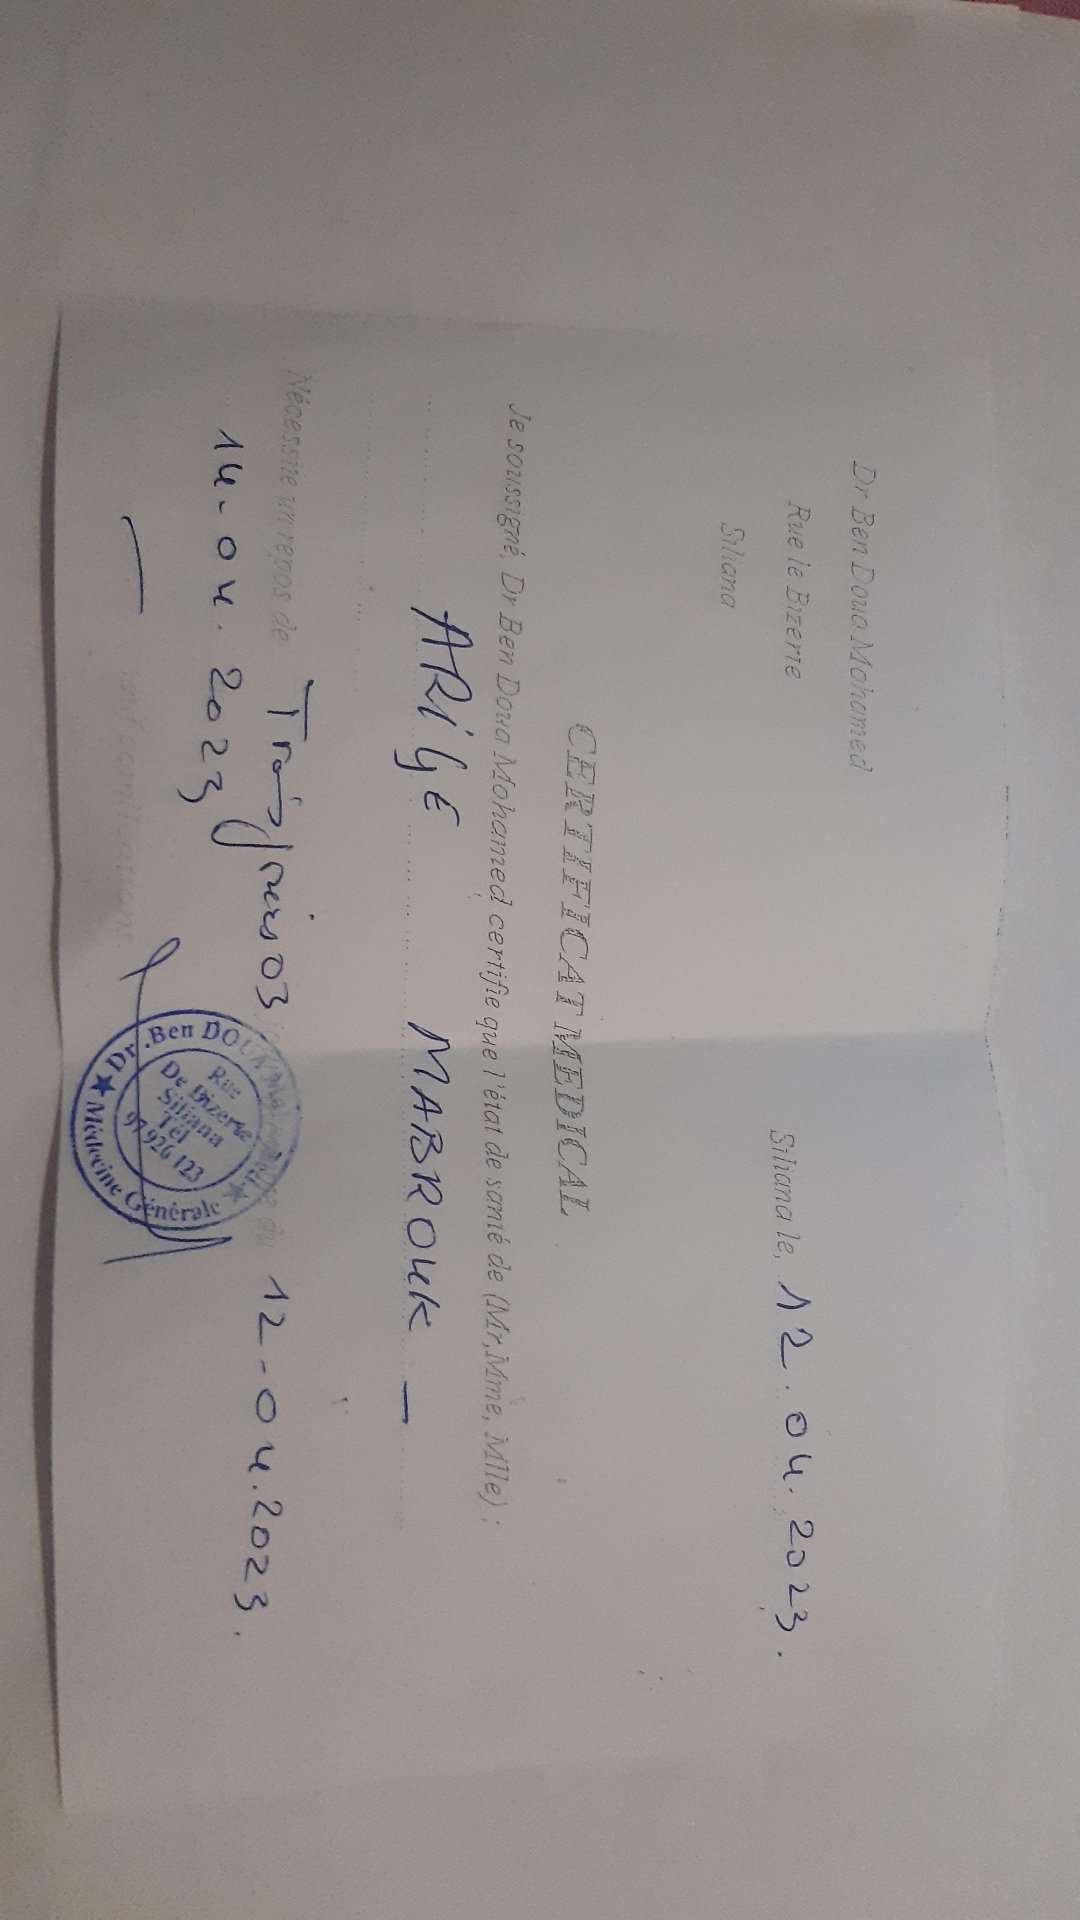 Dr Ben Doua Mohamed
Rue le Bizerte
Siliana
Siliana le, 12.04.2023.
CERTIFICAT MEDICAL
Je soussigné, Dr Ben Doua Mohamed certifie que l'état de santé de (Mr, Mme, Mlle) :
ARijE MABROUK -
Nécessite un repos de Trois jours 03 du 12-04.2023.
14-04.2023
Dr. Ben DOUA
Rue
De Bizerte
Siliana
Tél
97 926 123
Médecine Générale